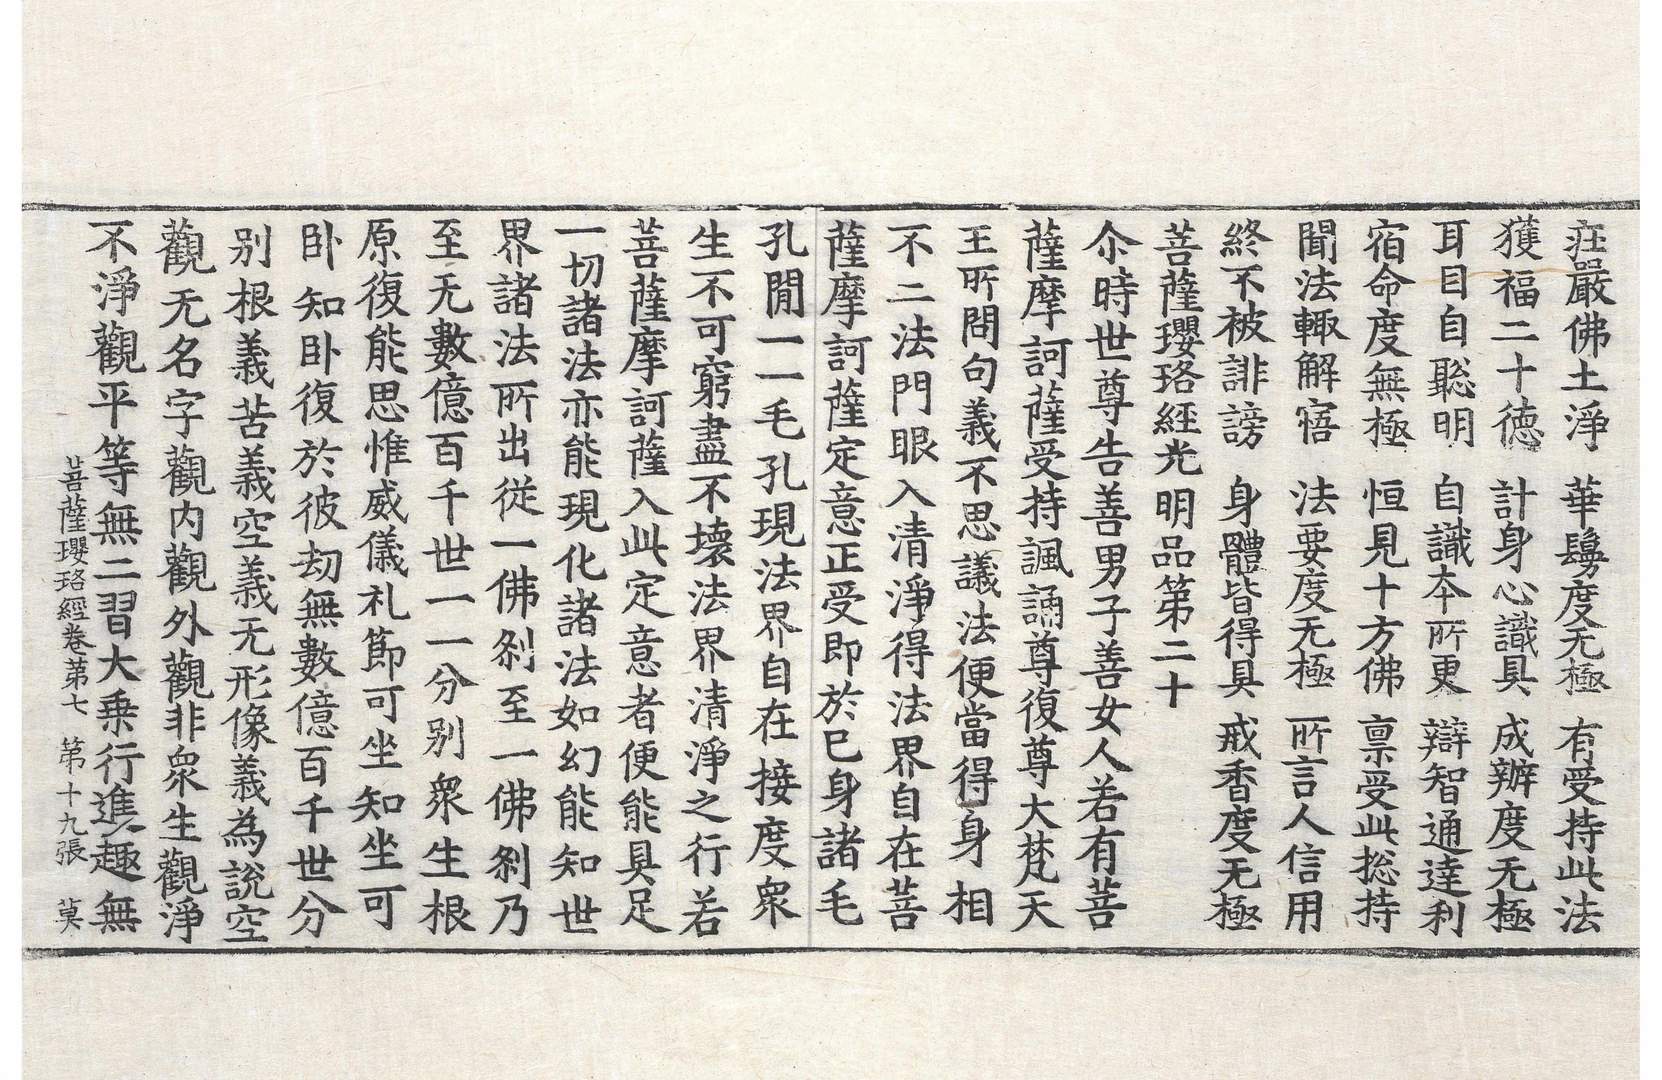 㽵嚴佛土淨 華鬘度无極 有受持此法
獲福二十德 計身心識具 成辦度无極
耳目自聡明 自識本所更 辯智通達利
宿命度無極 恒見十方佛 禀受此捴持
聞法輙解寤 法要度无極 所言人信用
終不被誹謗 身體皆得具 戒香度无極
菩薩瓔珞經光明品第二十
尒時世尊告善男子善女人若有菩
薩摩訶薩受持諷誦尊復尊大梵天
王所問句義不思議法便當得身相
不二法門眼入清淨得法界自在菩
薩摩訶薩定意正受即於巳身諸毛
孔閒一一毛孔現法界自在接度衆
生不可窮盡不壞法界清淨之行若
菩薩摩訶薩入此定意者便能具足
一切諸法亦能現化諸法如幻能知世
界諸法所出從一佛刹至一佛刹乃
至无數億百千世一一分别衆生根
原復能思惟威儀礼節可坐知坐可
卧知卧復於彼劫無數億百千世分
别根義苦義空義无形像義為說空
觀无名字觀内觀外觀非衆生觀淨
不淨觀平等無二習大乗行進趣無
菩薩瓔珞經卷苐七 第十九張 莫